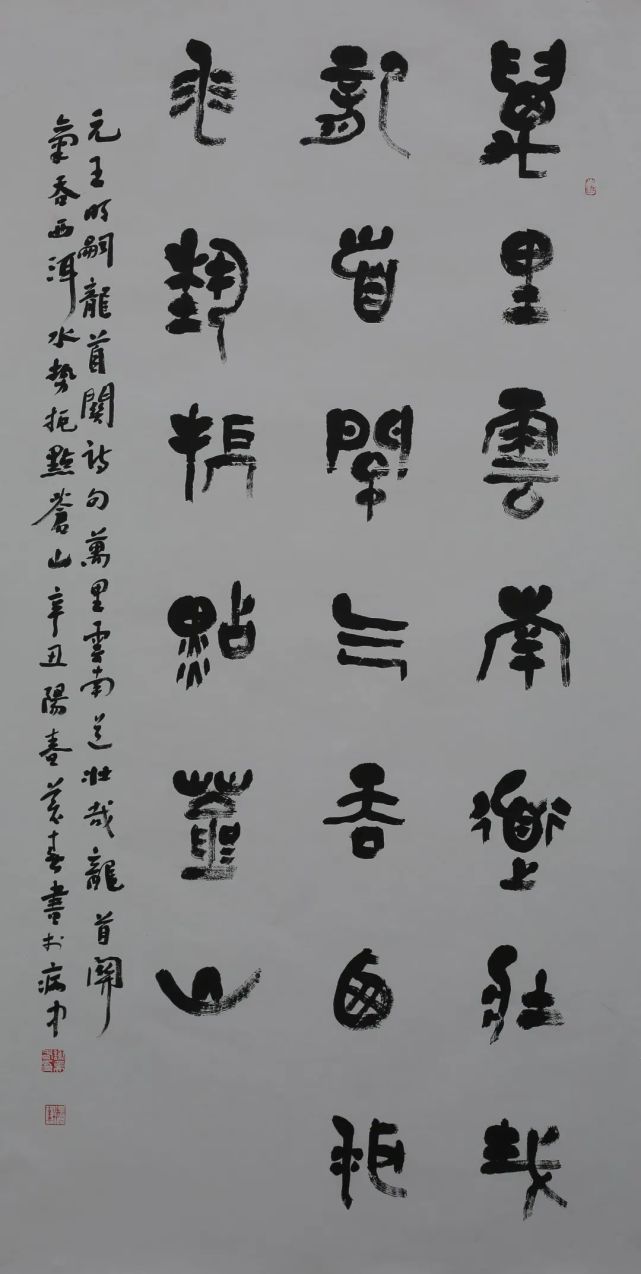 萬里雲南道壯哉
龍首關氣吞西洱
水勢扼點蒼山
元王明嗣龍首關詩句萬里雲南道壯哉龍首關
氣吞西洱水勢扼點蒼山辛丑陽春書於病中